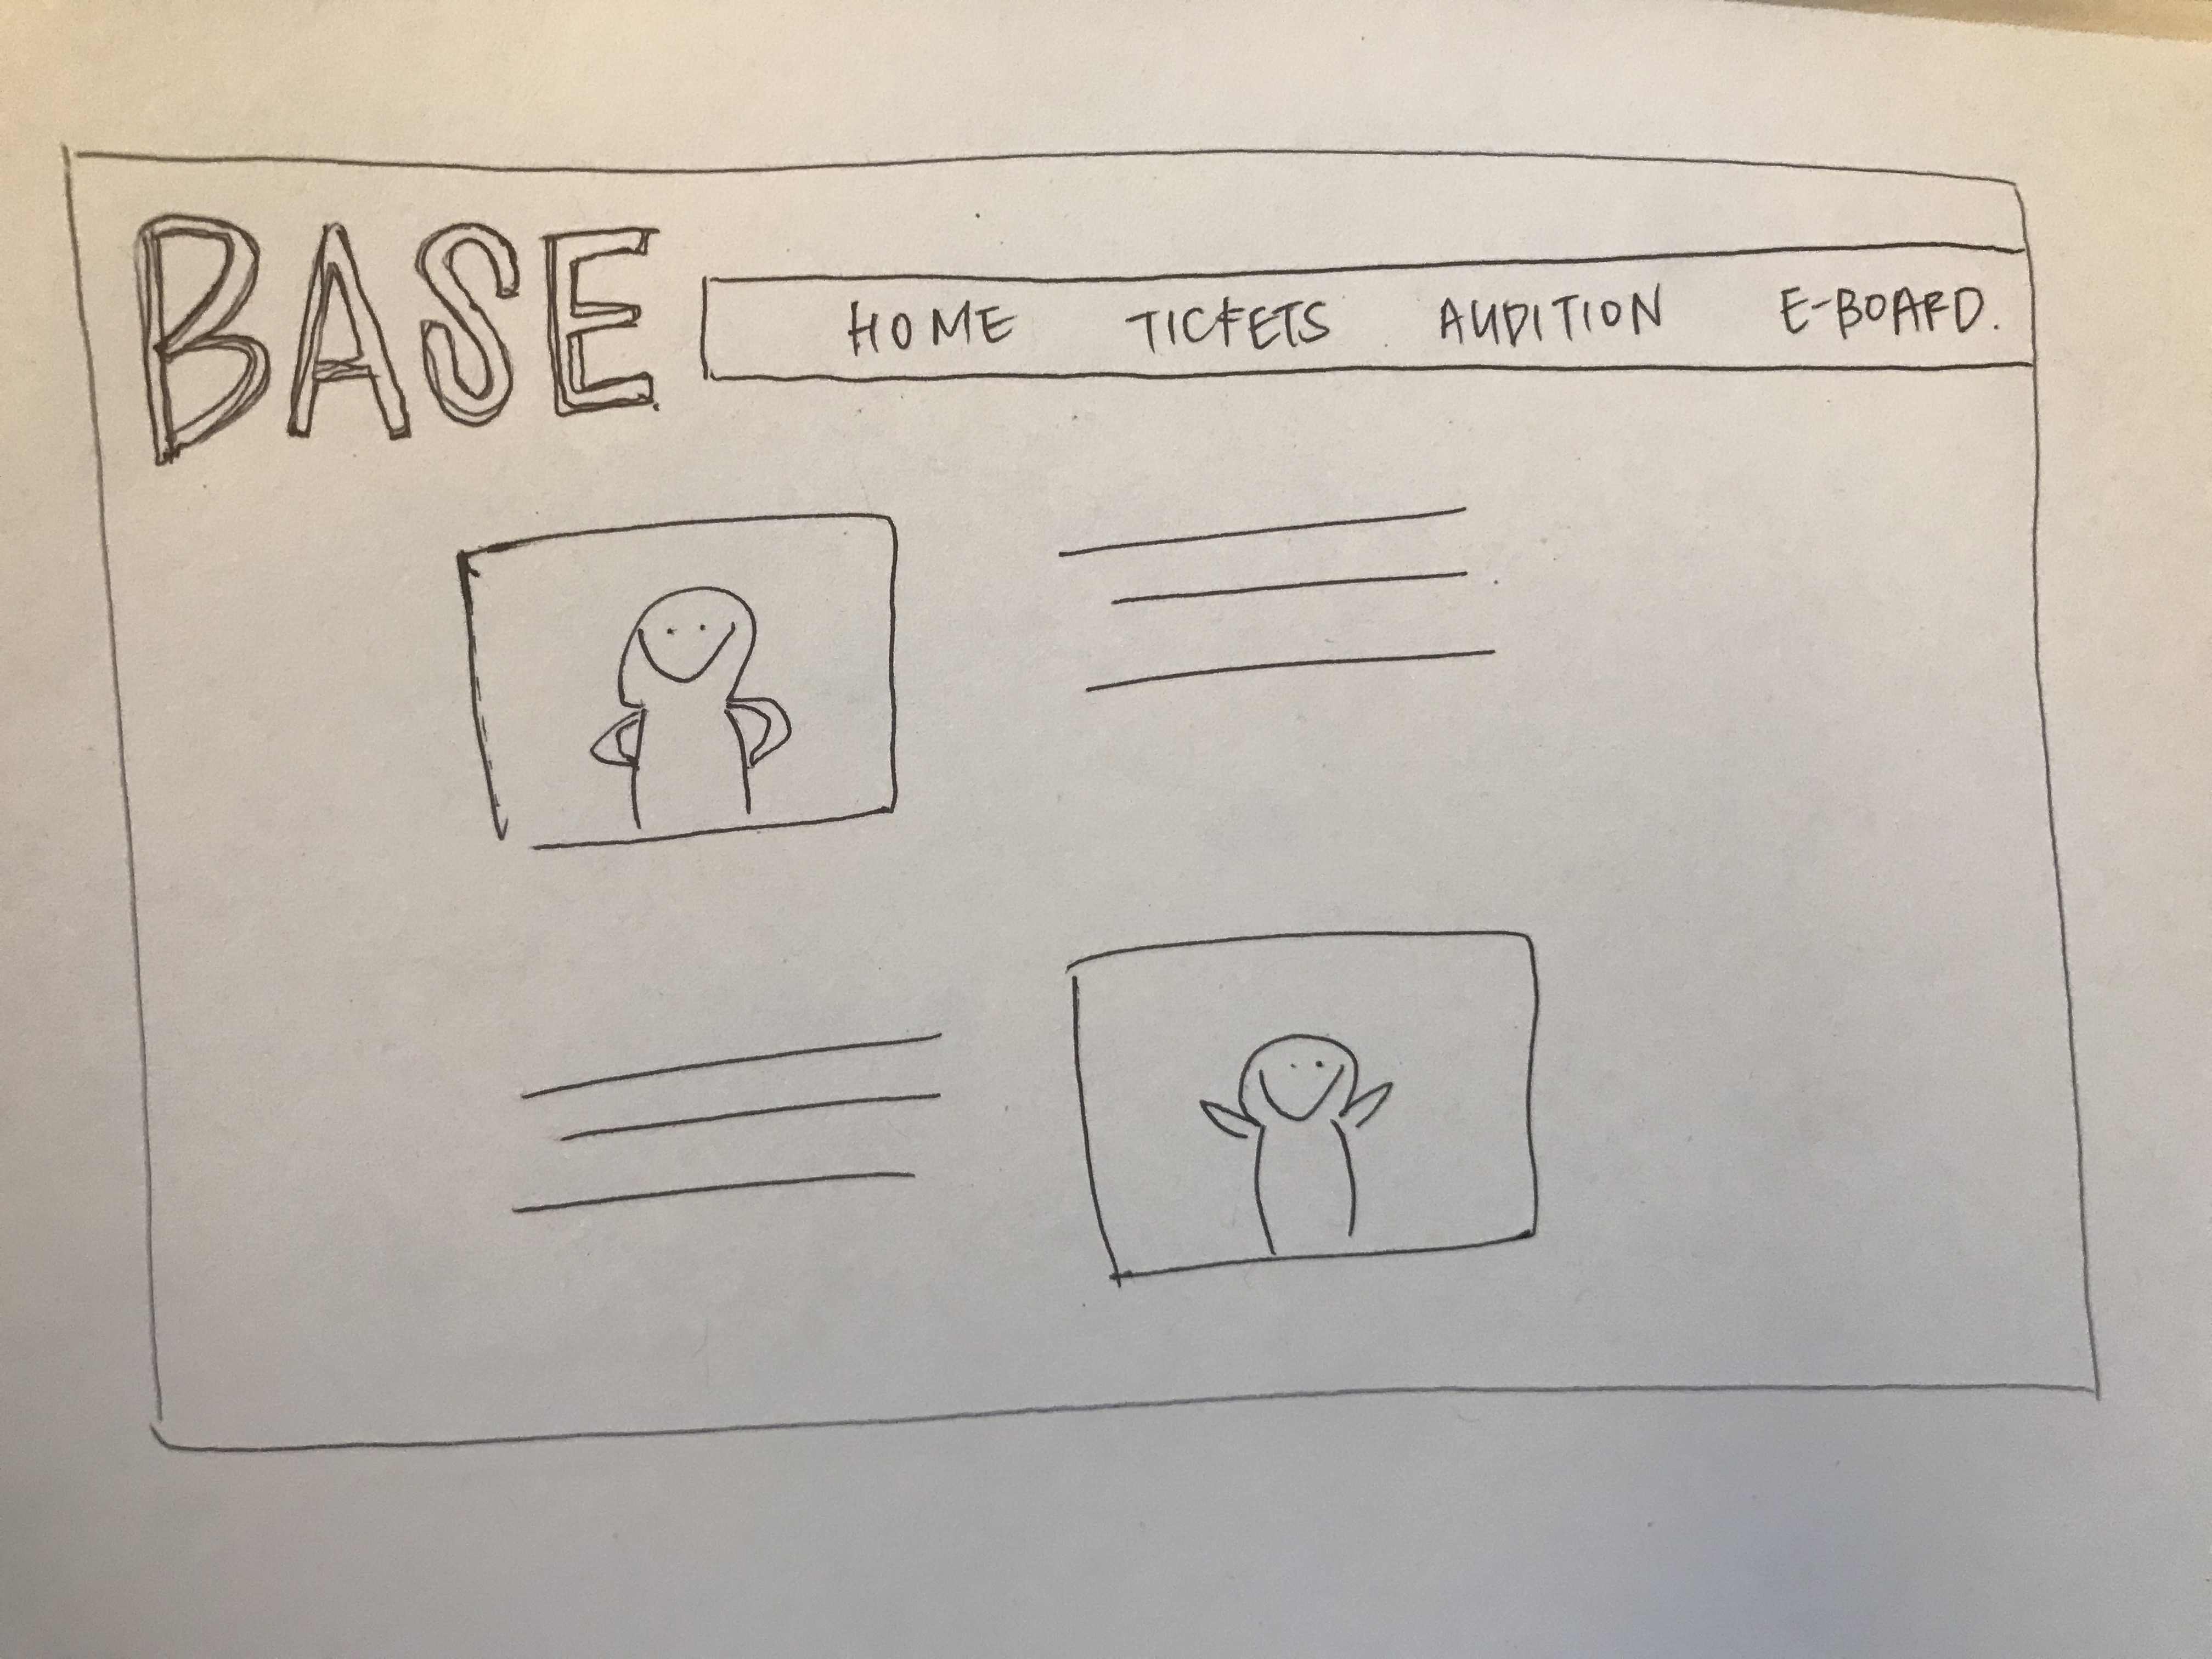 BASE
HOME TICKETS AUDITION E-BOARD.